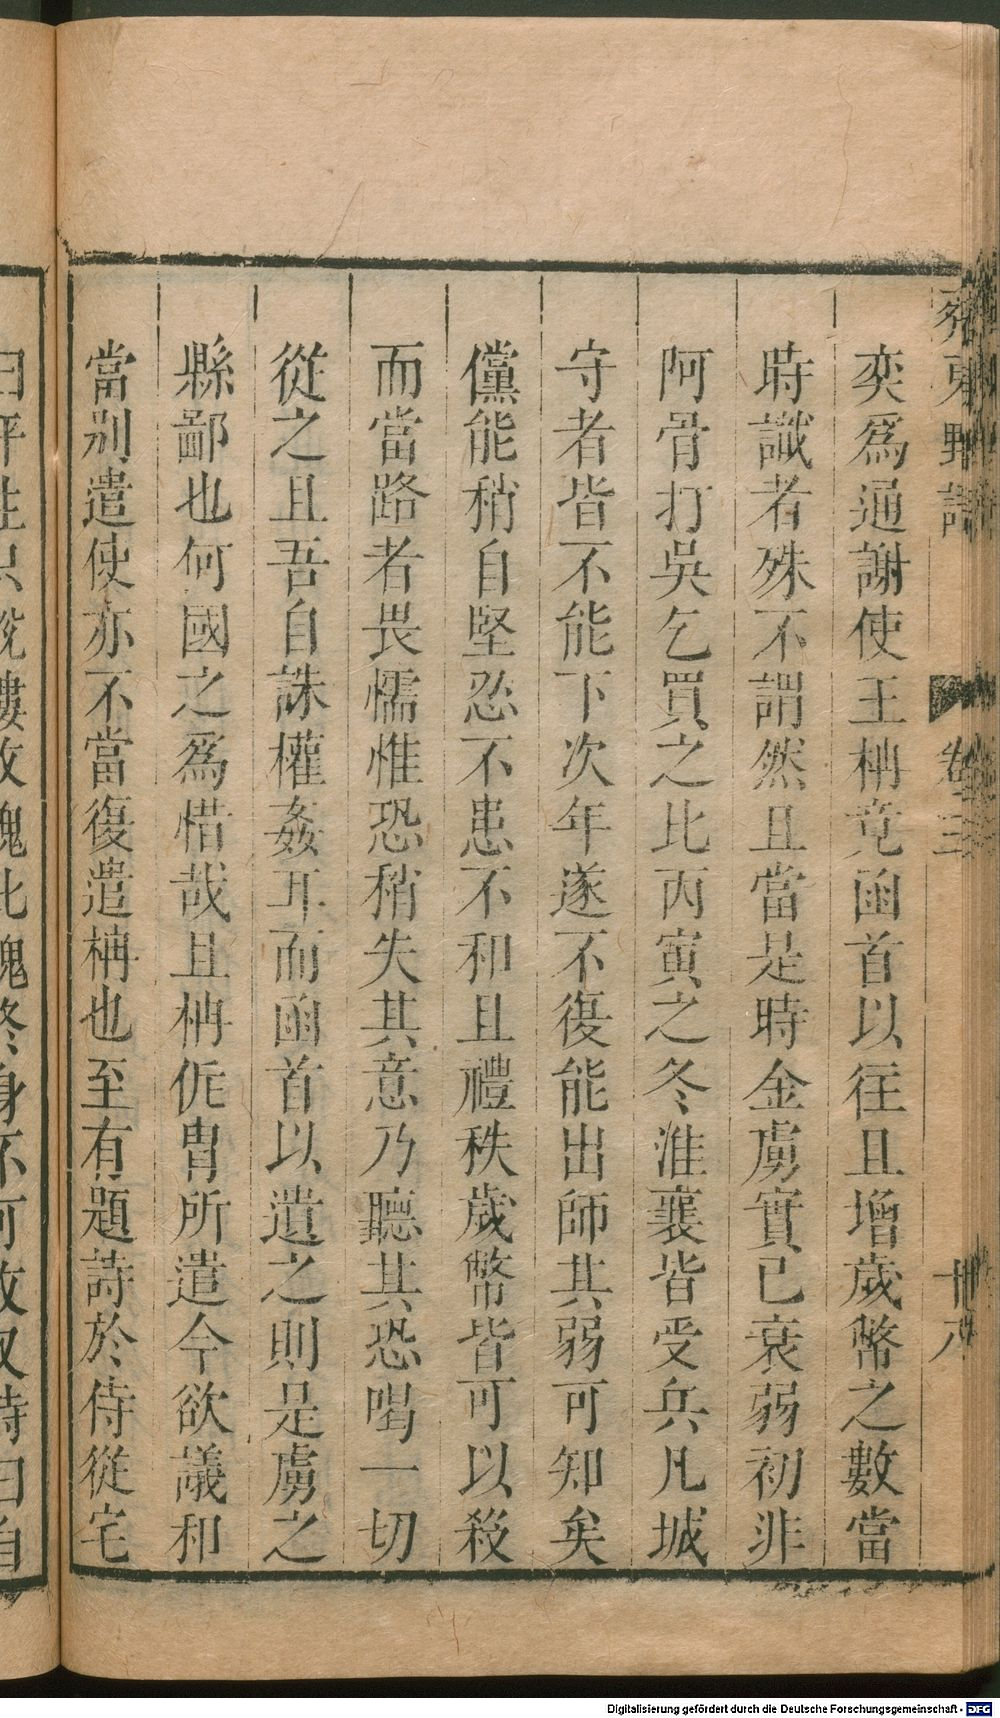 奕爲通謝使王柟竟函首以往且增歲幣之數當
時識者殊不謂然且當是時金虜實已衰弱初非
阿骨打吳乞買之比丙寅之冬淮襄皆受兵凡城
守者皆不能下次年遂不復能出師其弱可知矣
儻能稍自堅忍不患不和且禮秩歲幣皆可以殺
而當路者畏懦惟恐稍失其意乃聽其恐喝一切
從之且吾自誅權姦耳而函首以遺之則是虜之
縣鄙也何國之爲惜哉且柟侂胄所遣今欲議和
當别遣使亦不當復遣柟也至有題詩於侍從宅
卷三
Digitalisierung gefördert durch die Deutsche Forschungsgemeinschaft - DFG